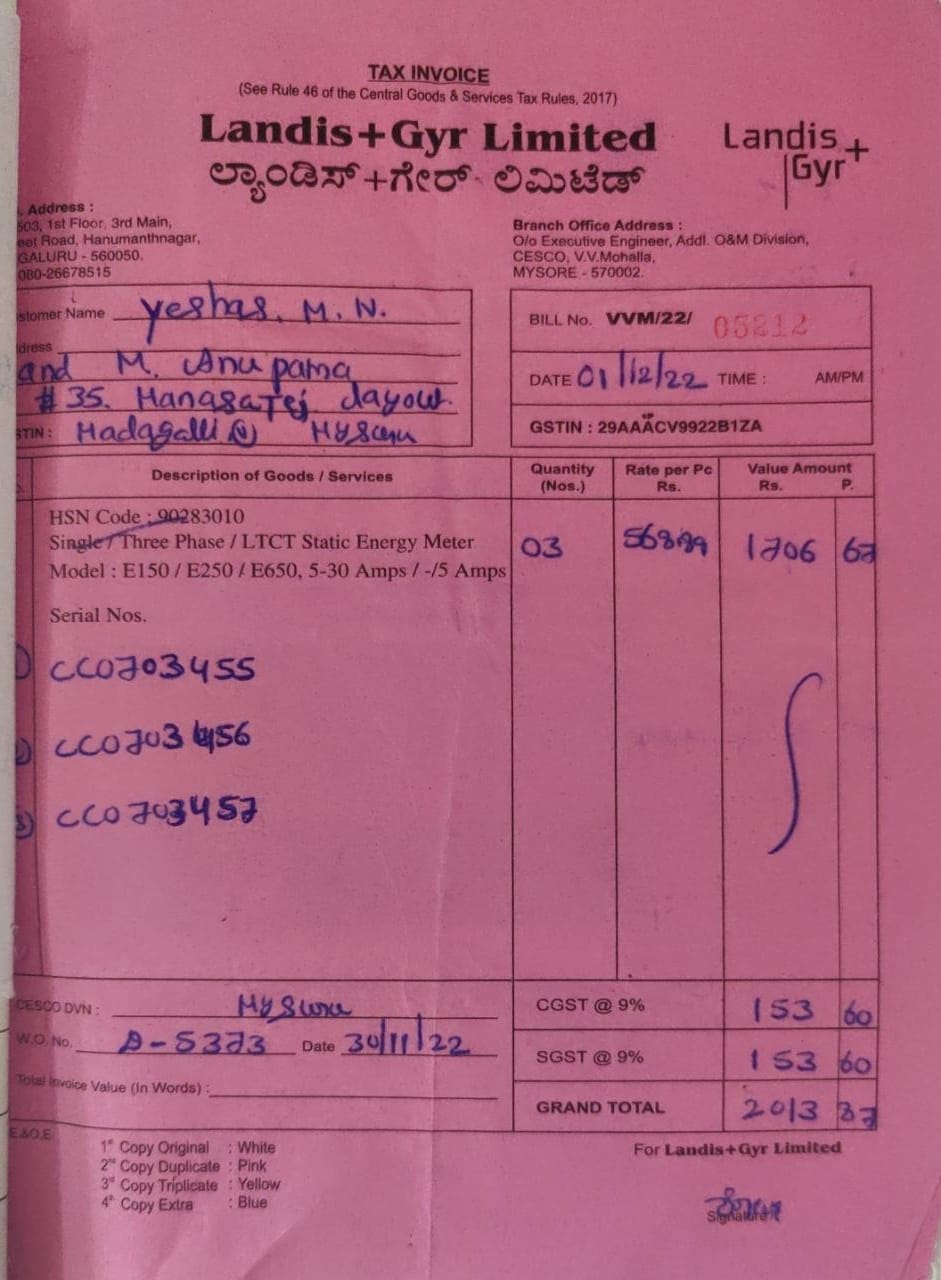 TAX INVOICE
(See Rule 46 of the Central Goods & Services Tax Rules, 2017)
Landis+Gyr Limited
ಲ್ಯಾಂಡಿಸ್+ಗೇರ್ ಲಿಮಿಟೆಡ್
Landis+
Gyr
. Address :
503, 1st Floor, 3rd Main,
eet Road, Hanumanthnagar,
GALURU - 560050.
080-26678515
Branch Office Address :
O/o Executive Engineer, Addl. O&M Division,
CESCO, V.V.Mohalla,
MYSORE - 570002.
stomer Name Yeshas. M. N.
dress
and M. Anupama
# 35. Manasatej Layout.
STIN : Madagalli (V) Mysuru
BILL No. VVM/22/ 05212
DATE 01/12/22 TIME : AM/PM
GSTIN : 29AAACV9922B1ZA
Description of Goods / Services Quantity (Nos.) Rate per Pc Rs. Value Amount Rs. P.
HSN Code : 90283010
Single / Three Phase / LTCT Static Energy Meter 03 1706 67
Model : E150 / E250 / E650, 5-30 Amps / -/5 Amps
Serial Nos.
1) CC0703455
2) CC0703456
3) CC0703457
CESCO DVN : Mysuru
W.O. No. D-5373 Date 30/11/22
Total Invoice Value (In Words) :
CGST @ 9% 153 60
SGST @ 9% 153 60
GRAND TOTAL 2013 87
E.&O.E
1st Copy Original : White
2nd Copy Duplicate : Pink
3rd Copy Triplicate : Yellow
4th Copy Extra : Blue
For Landis+Gyr Limited
Signature